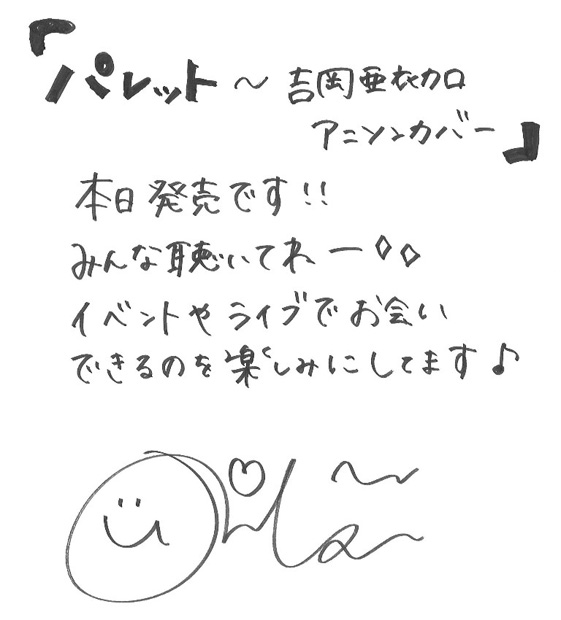 『パレット～吉岡亜衣加
アニソンカバー』
本日発売です!!
みんな聴いてねー
イベントやライブでお会い
できるのを楽しみにしてます♪